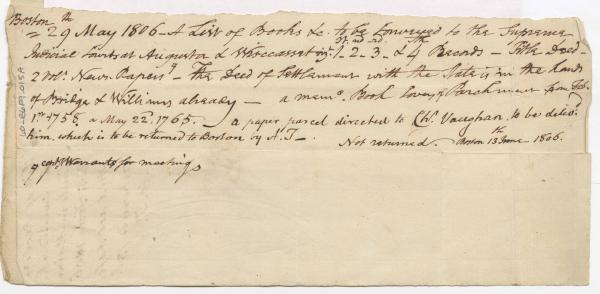 Boston
= 29th May 1806 - A List of Books &c. to be Conveyed to the Supreme
Judicial Courts at Augusta & Wiscasset viz. 1st 2nd 3rd & 4th Records - Title Deed -
2 vols. News Papers - the Deed of Settlement with the State is in the hands
of Bridge & Williams already - a memo. Book cover of Parchment from Feb.
1st 1755 to May 22d. 1765. - a paper parcel directed to Chs. Vaughan, to be deliv'd
him, which is to be returned to Boston by A:T -. Not returned. Boston 13th June 1806.
7 copy Warrants for meetings